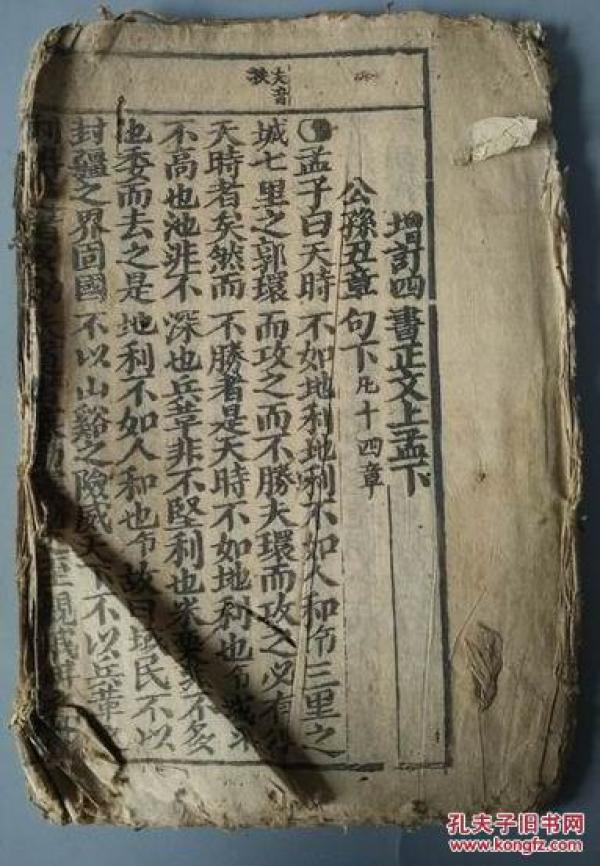 夫音
扶
增訂四書正文上孟下
公孫丑章句下凡十四章
孟子曰天時不如地利地利不如人和三里之
城七里之郭環而攻之而不勝夫環而攻之必有得
天時者矣然而不勝者是天時不如地利也城非
不高也池非不深也兵革非不堅利也米粟非不多
也委而去之是地利不如人和也故曰域民不以
封疆之界固國不以山谿之險威天下不以兵革之
助至親戚畔
孔夫子旧书网
www.kongfz.com